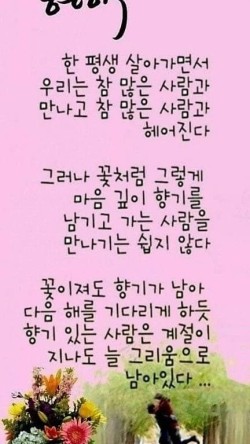 한 평생 살아가면서
우리는 참 많은 사람과
만나고 참 많은 사람과
헤어진다
그러나 꽃처럼 그렇게
마음 깊이 향기를
남기고 가는 사람을
만나기는 쉽지 않다
꽃이져도 향기가 남아
다음 해를 기다리게 하듯
향기 있는 사람은 계절이
지나도 늘 그리움으로
남아있다 ...